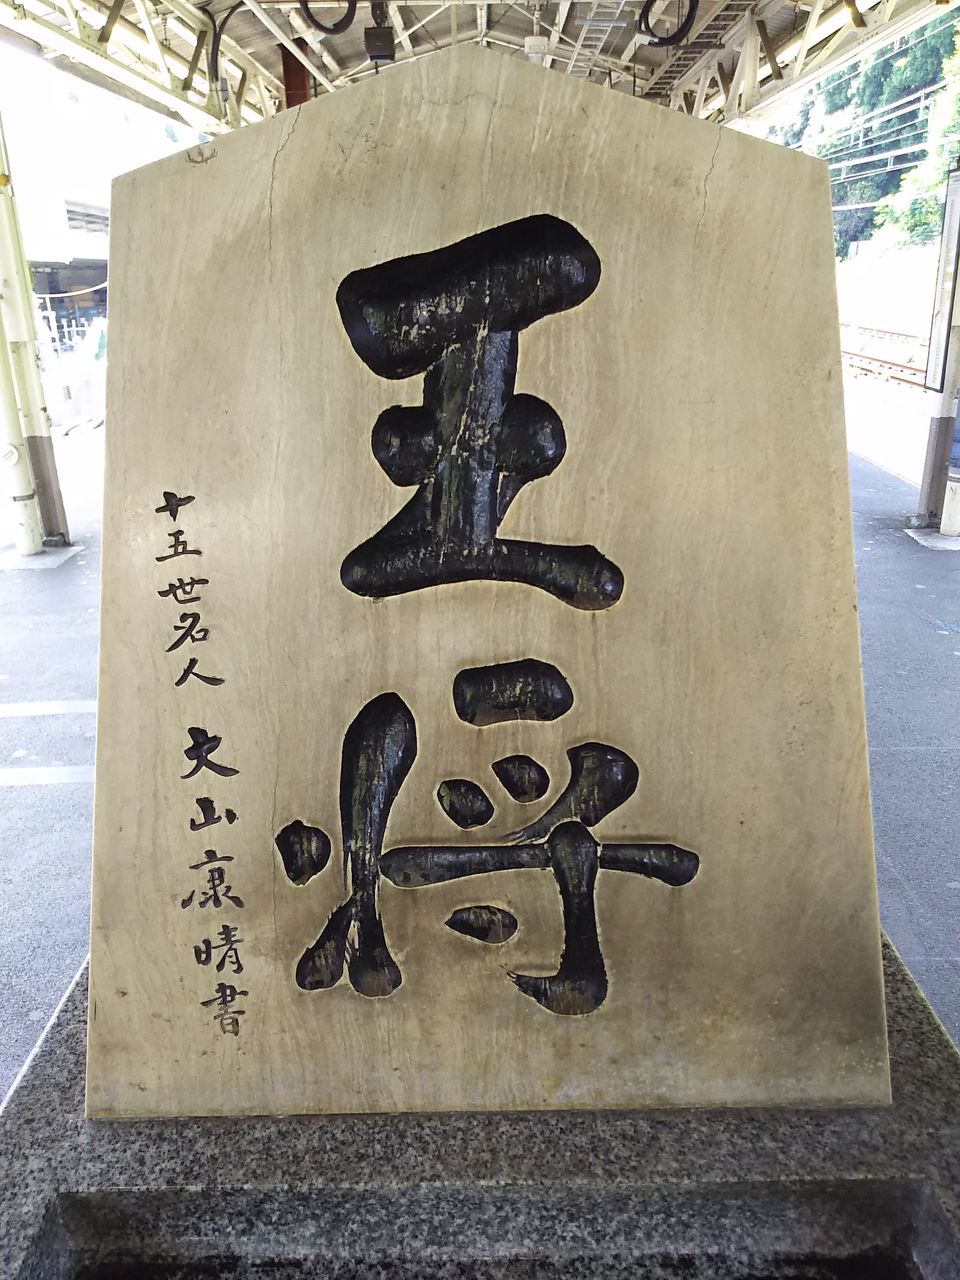 王将
十五世名人 大山康晴書